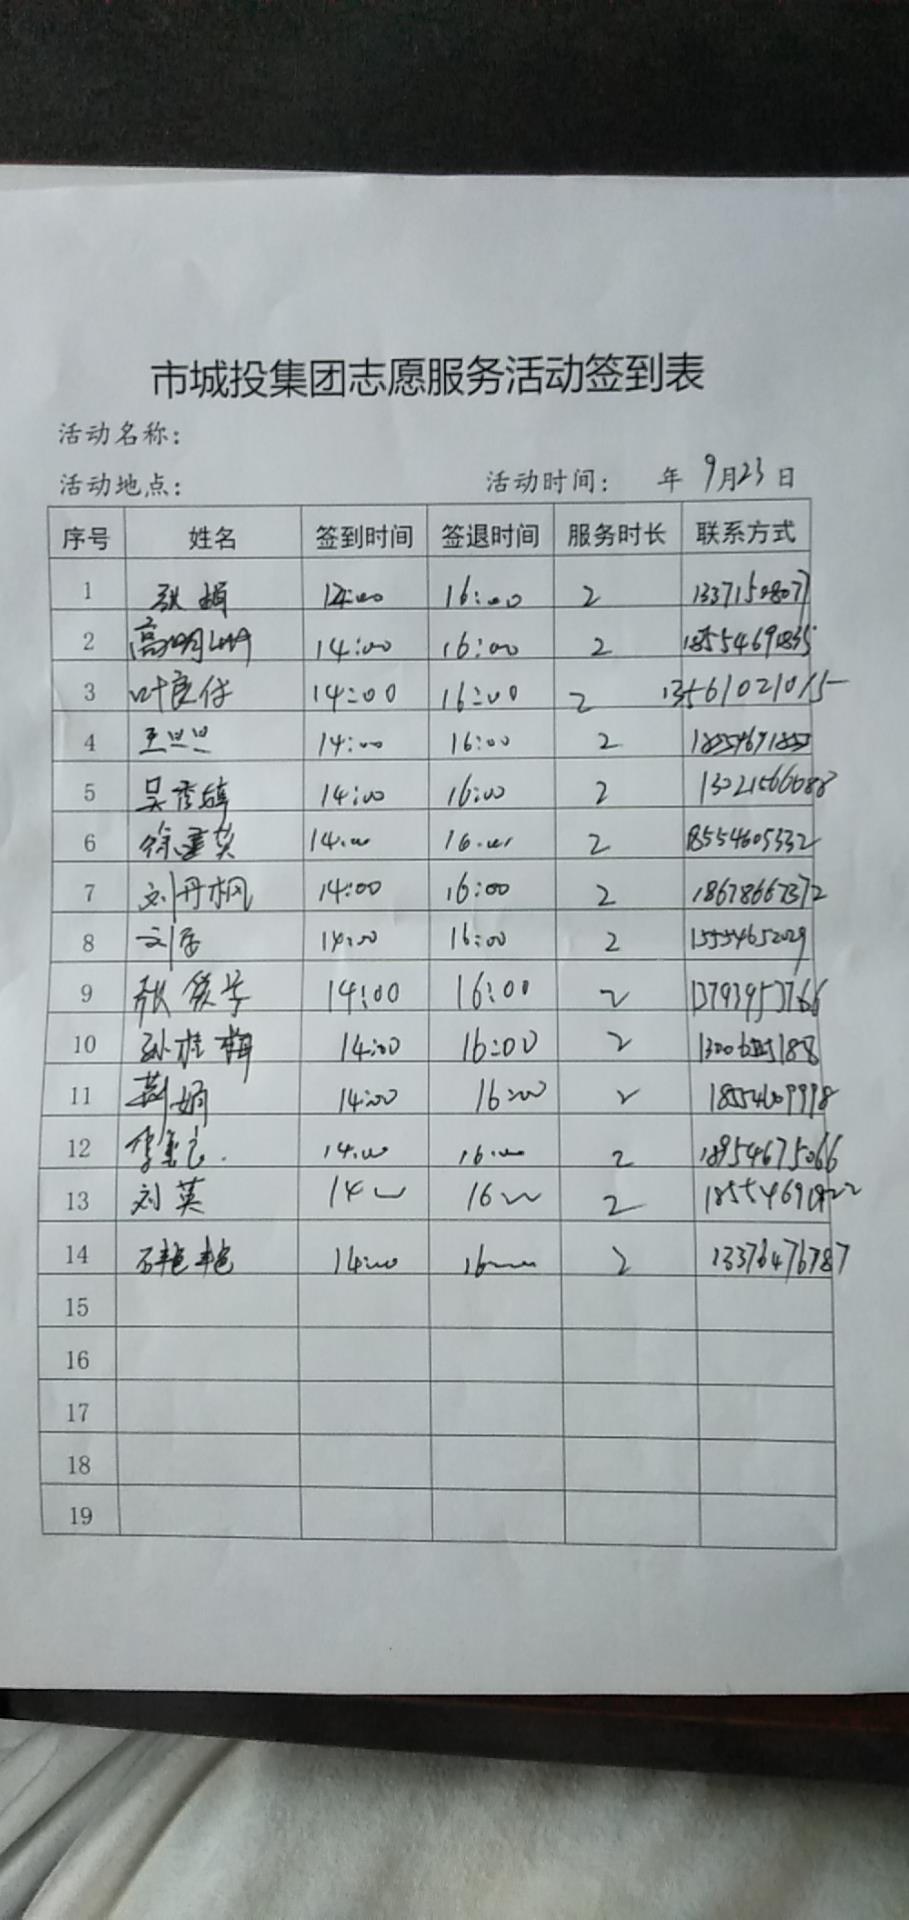 市城投集团志愿服务活动签到表
活动名称：
活动地点： 活动时间： 年 9月23日
序号 姓名 签到时间 签退时间 服务时长 联系方式
1 张娟 14:00 16:00 2 13371508077
2 高明 14:00 16:00 2
3 14:00 16:00 2 13561021015
4 王旦旦 14:00 16:00 2
5 吴秀 14:00 16:00 2
6 徐 14:00 16:00 2 18554605332
7 刘丹枫 14:00 16:00 2 18678667372
8 14:00 16:00 2 15554652029
9 张 14:00 16:00 2 13793953766
10 孙桂梅 14:00 16:00 2
11 荆娟 14:00 16:00 2 18554609998
12 李 14:00 16:00 2 18954675066
13 刘英 14 16 2
14 石艳艳 14:00 16 2 13376476787
15
16
17
18
19